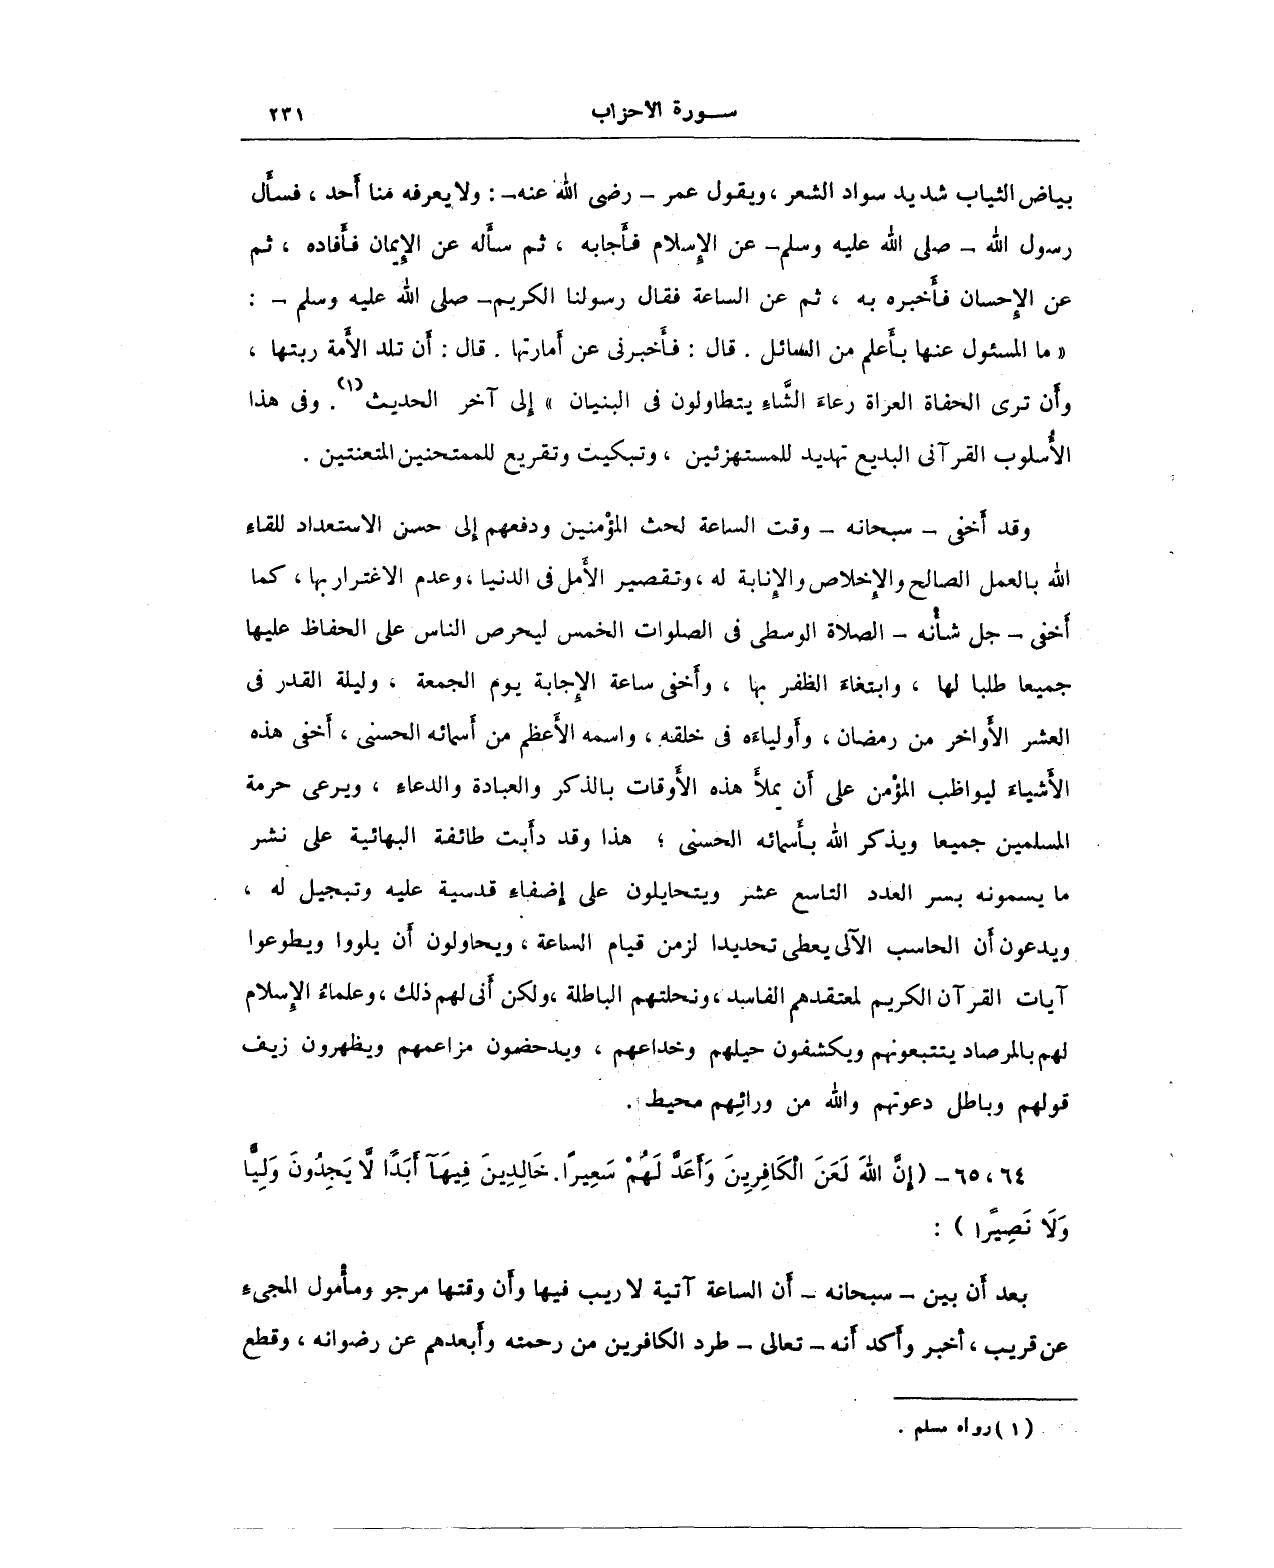 ســورة الاحزاب ٢٣١
بياض الثياب شديد سواد الشعر ، ويقول عمر – رضى الله عنه– : ولا يعرفه منا أحد ، فسأل
رسول الله – صلى الله عليه وسلم– عن الإسلام فأجابه ، ثم سأله عن الإيمان فأفاده ، ثم
عن الإحسان فأخبره به ، ثم عن الساعة فقال رسولنا الكريم– صلى الله عليه وسلم – :
« ما المسئول عنها بأعلم من السائل . قال : فأخبرنى عن أمارتها . قال : أن تلد الأمة ربتها ،
وأن ترى الحفاة العراة رعاء الشَّاءِ يتطاولون فى البنيان » إلى آخر الحديث (١) . وفى هذا
الأُسلوب القرآنى البديع تهديد للمستهزئين ، وتبكيت وتقريع للممتحنين المتعنتين .
وقد أخفى – سبحانه – وقت الساعة لحث المؤمنين ودفعهم إلى حسن الاستعداد للقاء
الله بالعمل الصالح والإخلاص والإنابة له ، وتقصير الأمل فى الدنيا ، وعدم الاغترار بها ، كما
أخفى – جل شأنه – الصلاة الوسطى فى الصلوات الخمس ليحرص الناس على الحفاظ عليها
جميعا طلبا لها ، وابتغاء الظفر بها ، وأخفى ساعة الإجابة يوم الجمعة ، وليلة القدر فى
العشر الأواخر من رمضان ، وأولياءه فى خلقه ، واسمه الأعظم من أسمائه الحسنى ، أخفى هذه
الأشياء ليواظب المؤمن على أن يملأ هذه الأوقات بالذكر والعبادة والدعاء ، ويرعى حرمة
المسلمين جميعا ويذكر الله بأسمائه الحسنى ؛ هذا وقد دأبت طائفة البهائية على نشر
ما يسمونه بسر العدد التاسع عشر ويتحايلون على إضفاء قدسية عليه وتبجيل له ،
ويدعون أن الحاسب الآلى يعطى تحديدا لزمن قيام الساعة ، ويحاولون أن يلووا ويطوعوا
آيات القرآن الكريم لمعتقدهم الفاسد ، ونحلتهم الباطلة ، ولكن أنى لهم ذلك ، وعلماءُ الإسلام
لهم بالمرصاد يتتبعونهم ويكشفون حيلهم وخداعهم ، ويدحضون مزاعمهم ويظهرون زيف
قولهم وباطل دعوتهم والله من ورائهم محيط .
٦٤ ، ٦٥ – (إِنَّ اللهَ لَعَنَ الْكَافِرِينَ وَأَعَدَّ لَهُمْ سَعِيرًا. خَالِدِينَ فِيهَآ أَبَدًا لَّا يَجِدُونَ وَلِيًّا
وَلَا نَصِيرًا ) :
بعد أن بين – سبحانه – أن الساعة آتية لا ريب فيها وأن وقتها مرجو ومأمول المجىء
عن قريب ، أخبر وأكد أنه – تعالى – طرد الكافرين من رحمته وأبعدهم عن رضوانه ، وقطع
(١) رواه مسلم .